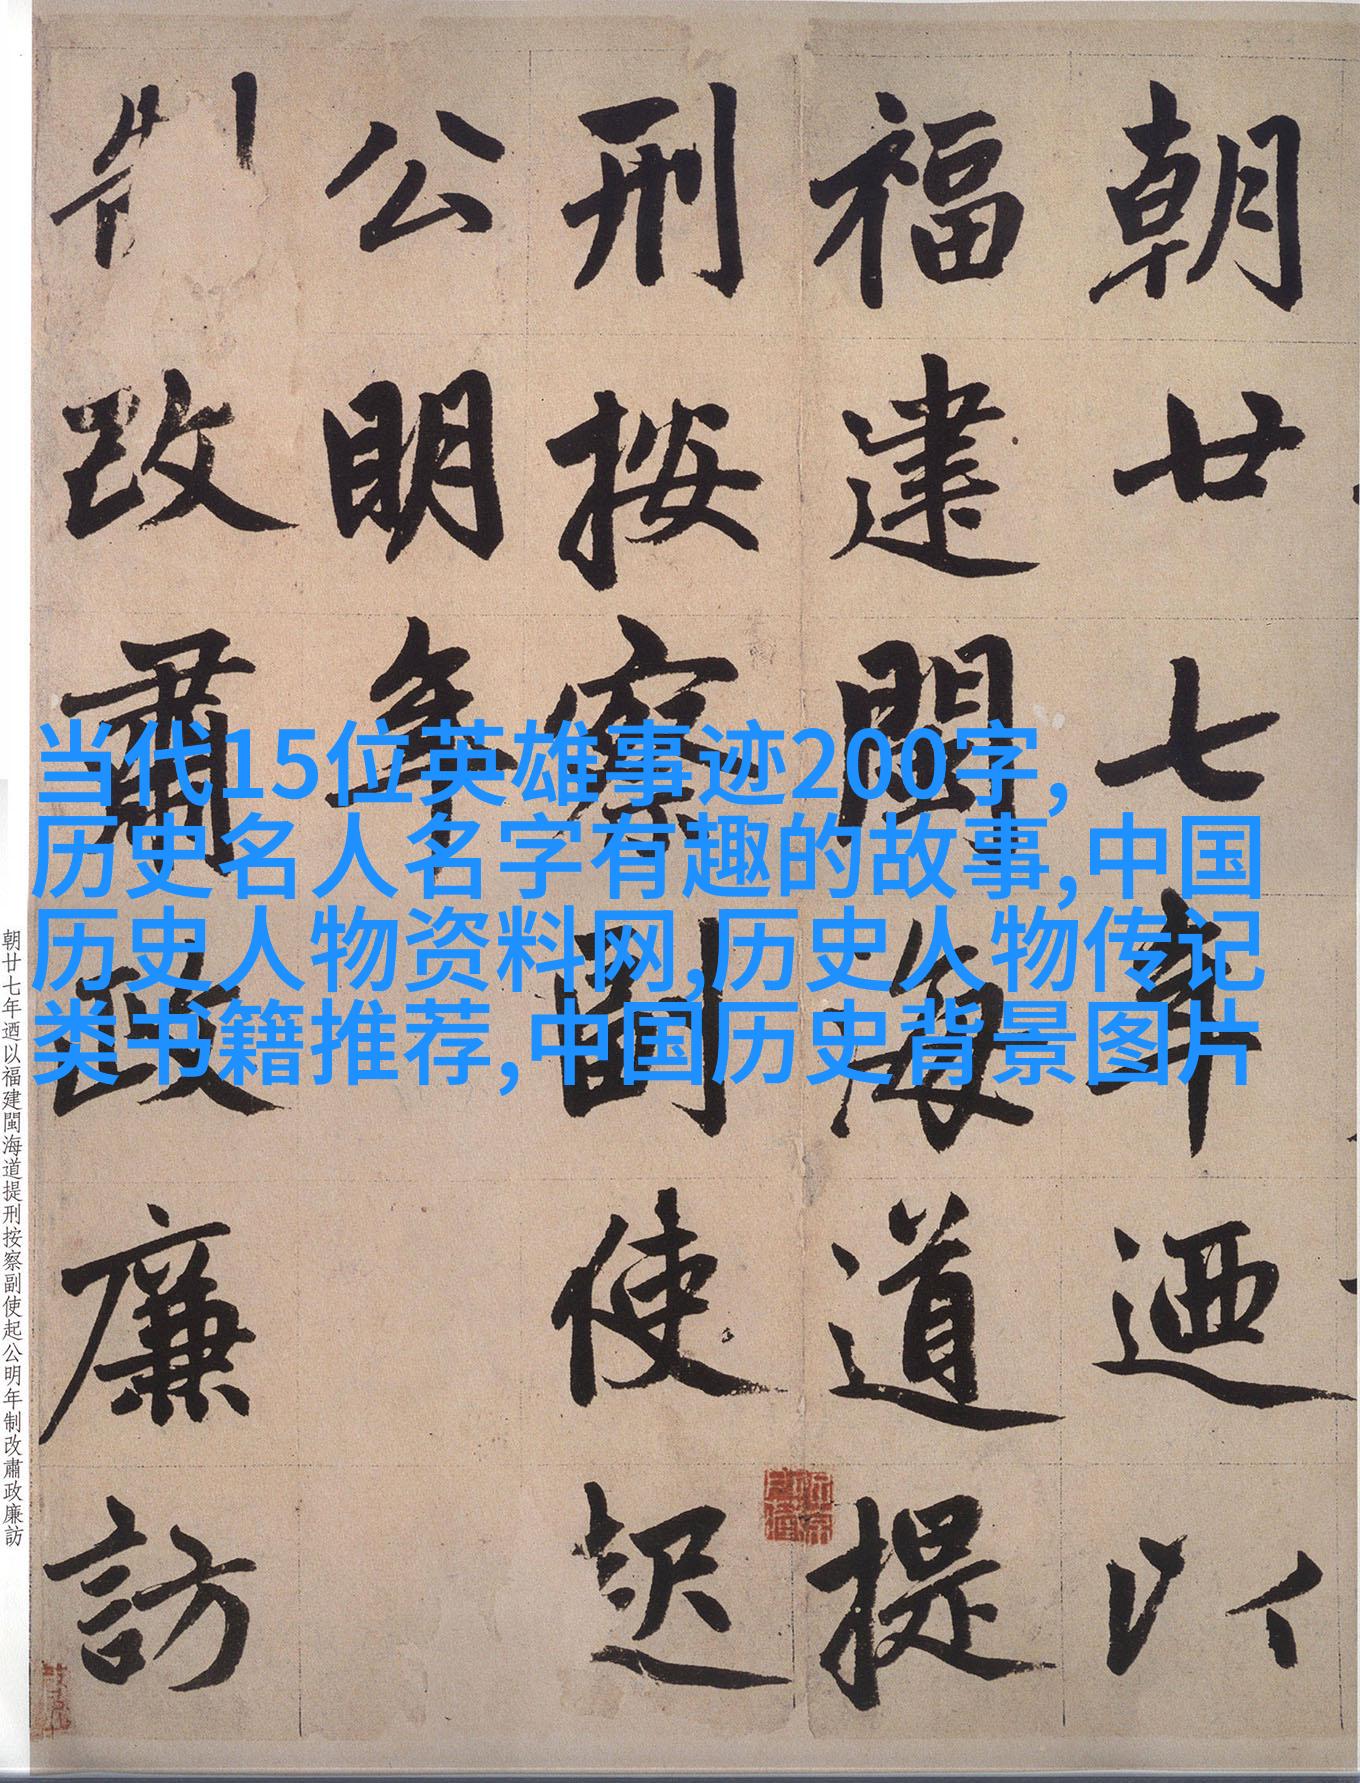 朝廿七年迺以
福建閩海道提
刑按察副使起
公明年
制改肅政廉訪
当代15位英雄事迹200字,
历史名人名字有趣的故事,中国
历史人物资料网,历史人物传记
类书籍推荐,中国历史背景图片
朝廿七年迺以福建閩海道提刑按察副使起公明年制改肅政廉訪